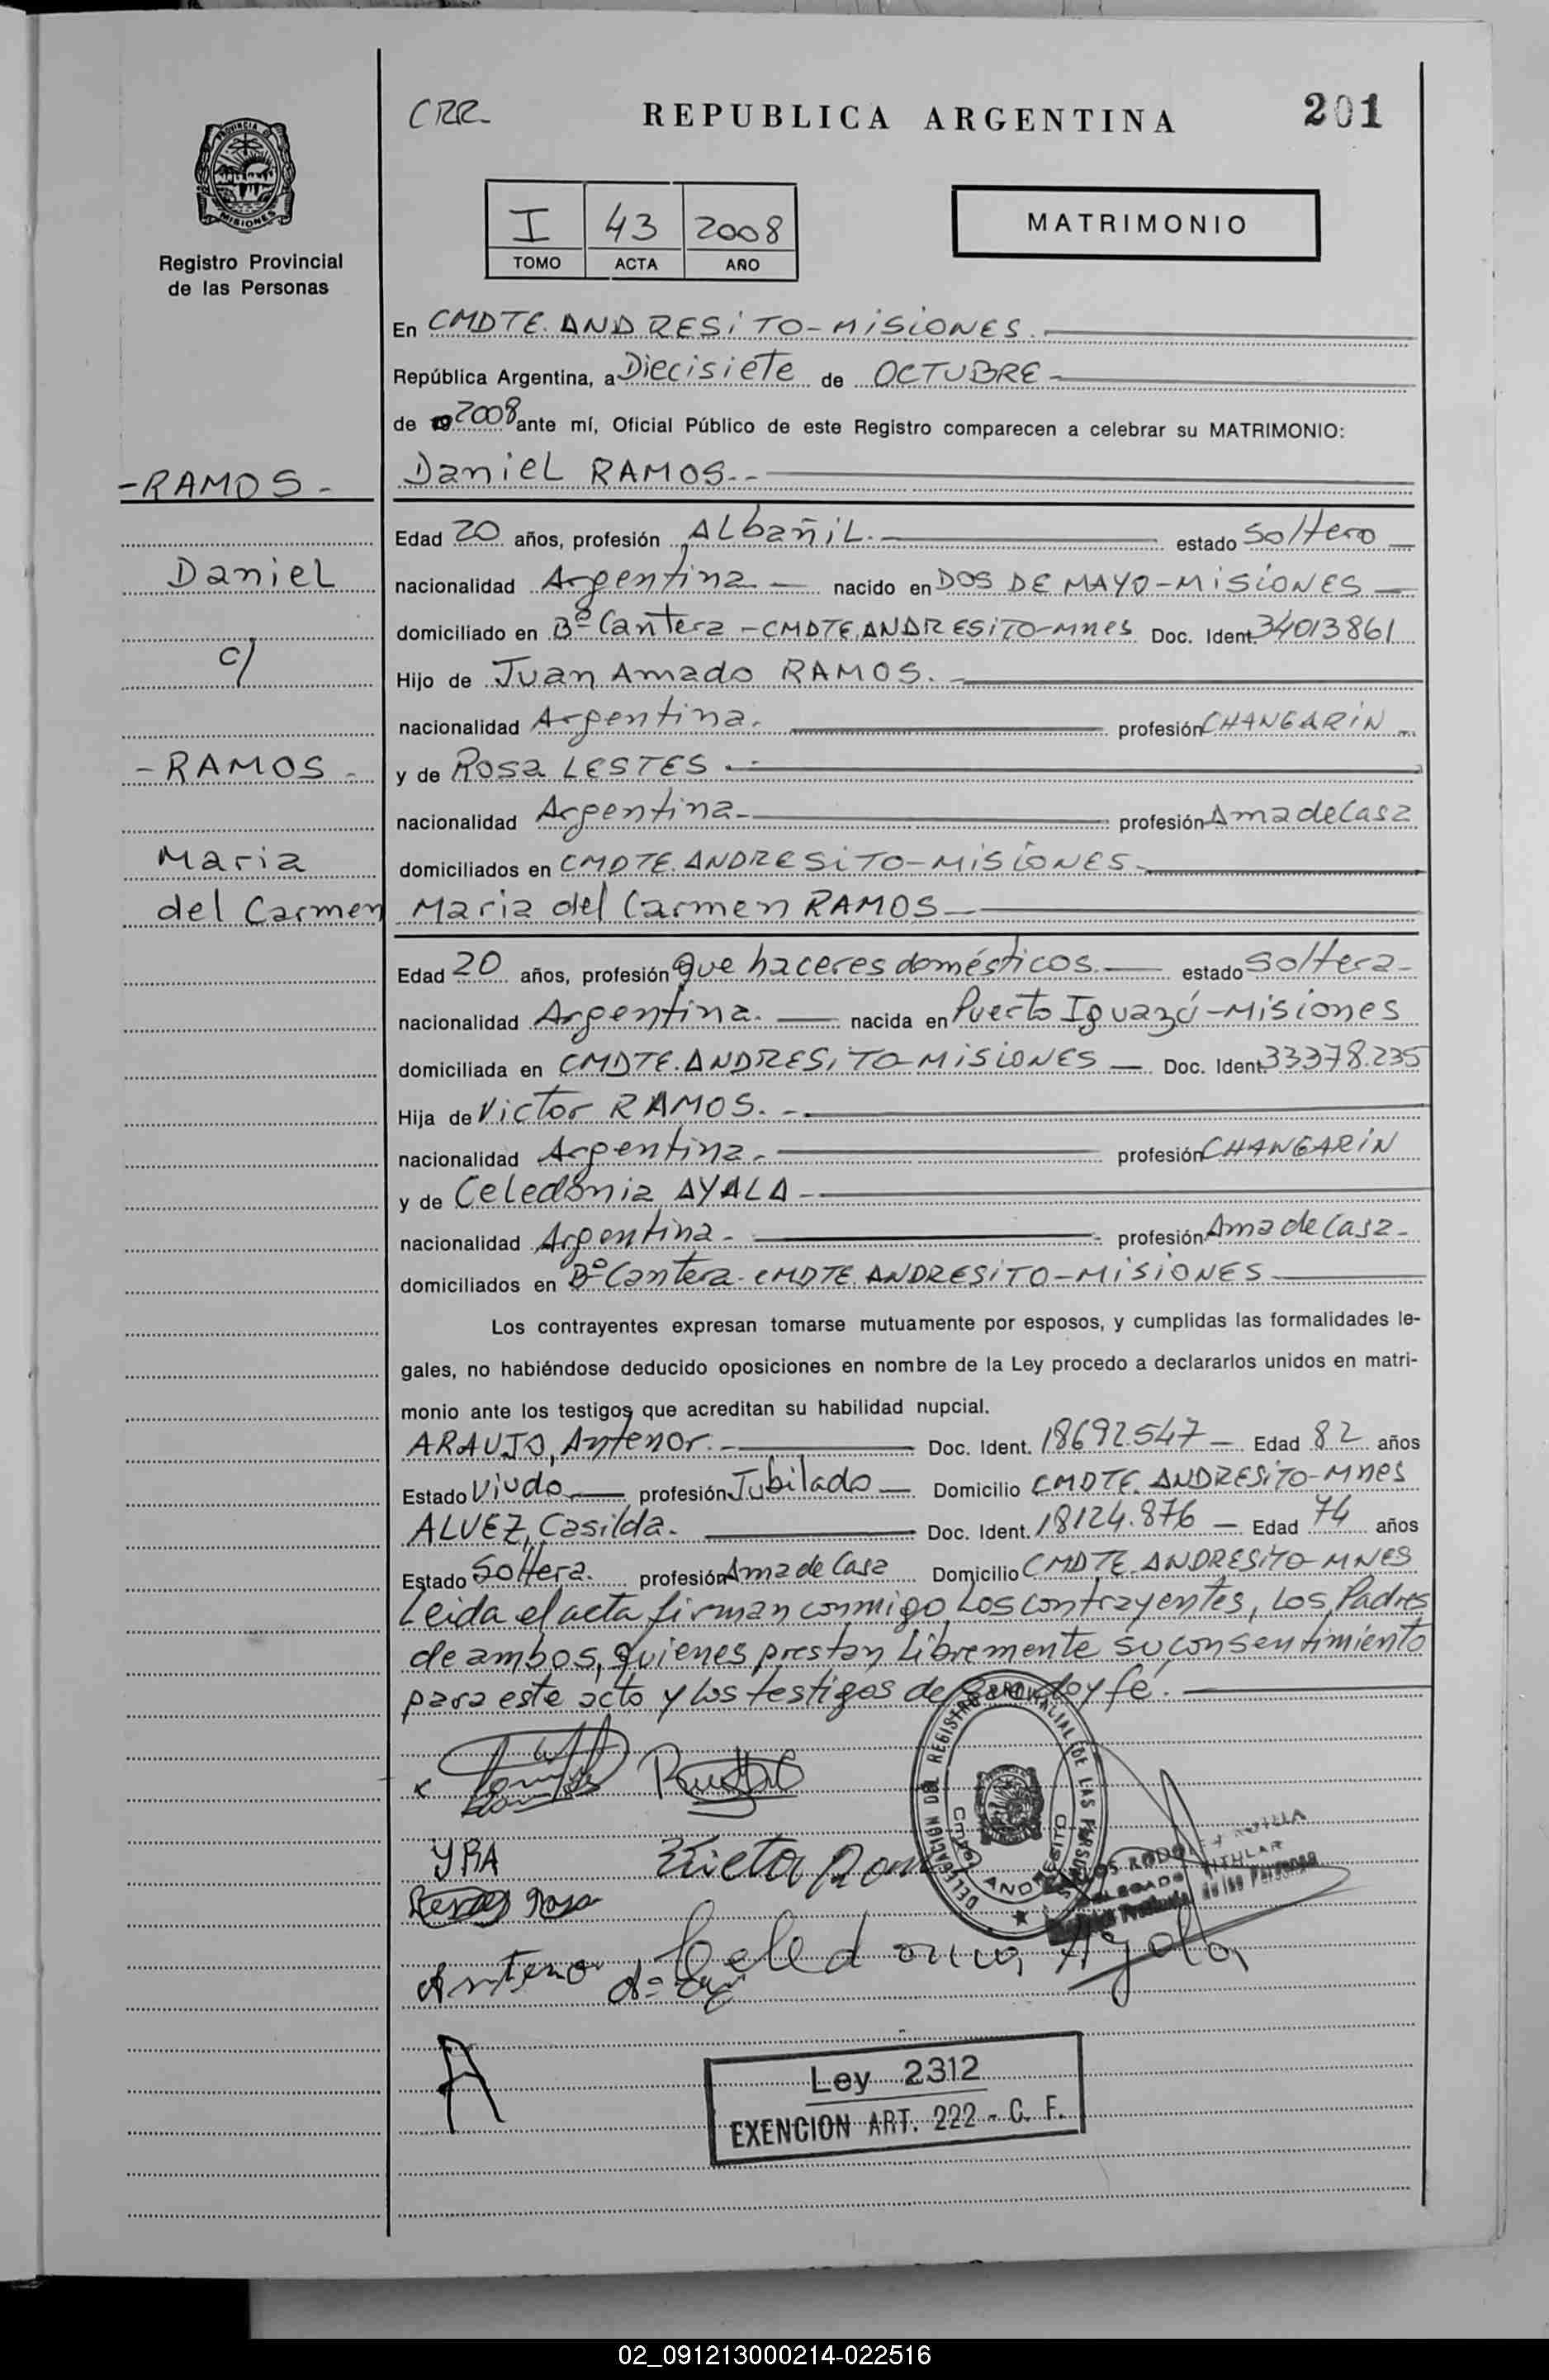 CRR
REPUBLICA ARGENTINA
201
PROVINCIA DE
MISIONES
Registro Provincial
de las Personas
I 43 2008
TOMO ACTA AÑO
MATRIMONIO
En CMDTE. ANDRESiTO-MiSiONES.
República Argentina, a Diecisiete de OCTUBRE-
de 2008 ante mí, Oficial Público de este Registro comparecen a celebrar su MATRIMONIO:
-RAMOS-
Daniel RAMOS.-
Edad 20 años, profesión ALbañiL. estado Soltero
Daniel
nacionalidad Argentina nacido en DOS DE MAYO-MiSiONES
domiciliado en Bº Cantera-CMDTE.ANDRESiTO-Mnes Doc. Ident. 34013861
c/
Hijo de Juan Amado RAMOS.
nacionalidad Argentina. profesión CHANGARiN
-RAMOS-
y de Rosa LESTES.
nacionalidad Argentina- profesión Ama de Casa
Maria
domiciliados en CMDTE.ANDRESiTO-MiSiONES-
del Carmen
Maria del Carmen RAMOS
Edad 20 años, profesión que haceres domésticos. estado Soltera-
nacionalidad Argentina. nacida en Puerto Iguazú-Misiones
domiciliada en CMDTE.ANDRESiTO-MiSiONES Doc. Ident. 33378.235
Hija de Victor RAMOS.-
nacionalidad Argentina- profesión CHANGARiN
y de Celedonia AYALA-
nacionalidad Argentina- profesión Ama de Casa-
domiciliados en Bº Cantera-CMDTE.ANDRESiTO-MiSiONES
Los contrayentes expresan tomarse mutuamente por esposos, y cumplidas las formalidades le-
gales, no habiéndose deducido oposiciones en nombre de la Ley procedo a declararlos unidos en matri-
monio ante los testigos que acreditan su habilidad nupcial.
ARAUJO, Antenor.- Doc. Ident. 18692.547 Edad 82 años
Estado Viudo profesión Jubilado Domicilio CMDTE.ANDRESiTO-Mnes
ALVEZ, Casilda. Doc. Ident. 18124.876 Edad 74 años
Estado Soltera. profesión Ama de Casa Domicilio CMDTE.ANDRESiTO-MNES
Leida el acta firman conmigo, Los contrayentes, Los Padres
de ambos, quienes prestan Libremente su consentimiento
para este acto y los testigos de que doy fé.
DELEGACION DEL REGISTRO PROVINCIAL DE LAS PERSONAS
CMDTE. ANDRESITO
YRA
Rosa
TITULAR
DELEGADO
de las Personas
Celedonia Ayala
Antenor
A
Ley 2312
EXENCION ART. 222 - C. F.
02_091213000214-022516